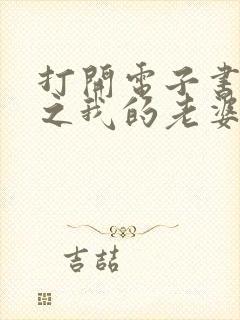 打開電子書
之我的老婆
吉喆